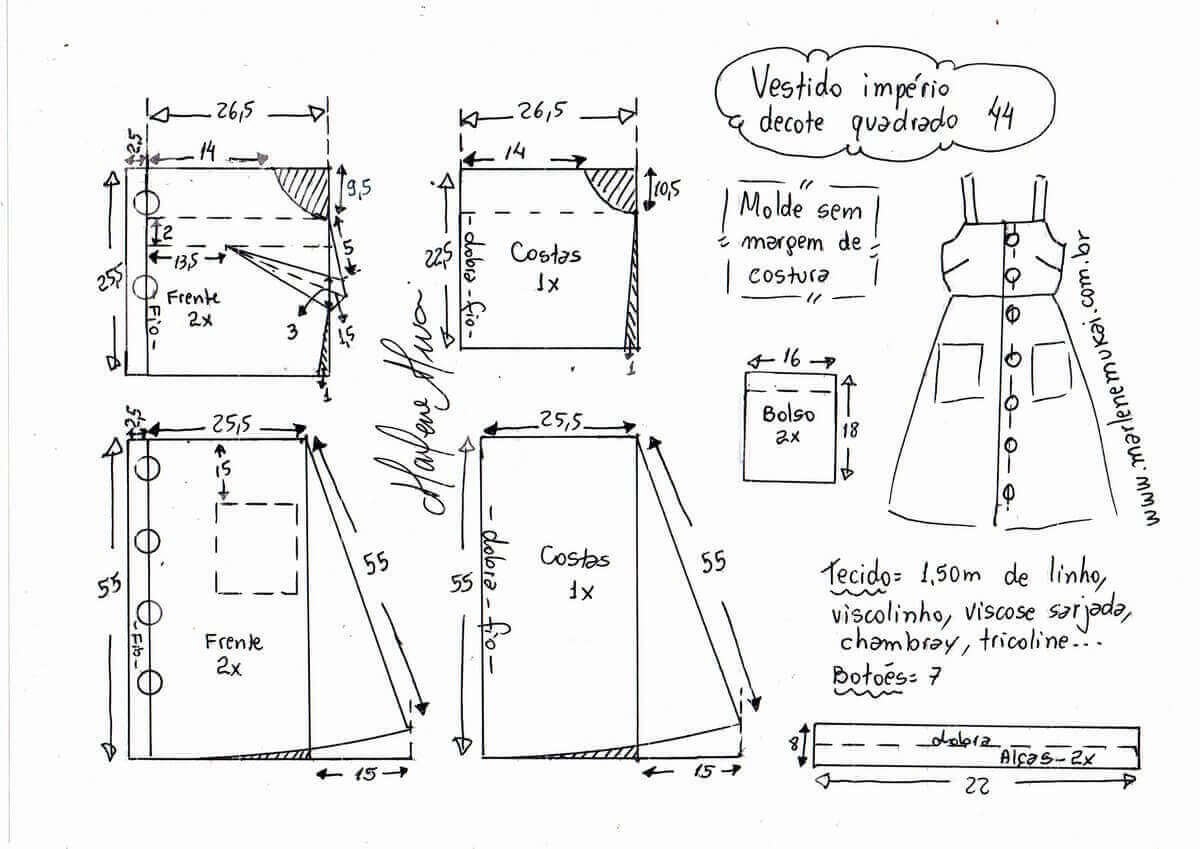 Vestido império
decote quadrado 44
Molde sem
margem de
costura
26,5
2,5
14
9,5
2
5
13,5
25,5
Frente
2x
Fio
3
1,5
1
26,5
14
10,5
22,5
dobra - fio
Costas
1x
1
Marlene Mukai
2,5
25,5
15
55
55
Frente
2x
Fio
15
25,5
55
dobra - fio
Costas
1x
55
15
16
Bolso
2x
18
www.marlenemukai.com.br
Tecido= 1,50m de linho,
viscolinho, viscose sarjada,
chambray, tricoline...
Botões= 7
8
dobra
Alças-2x
22